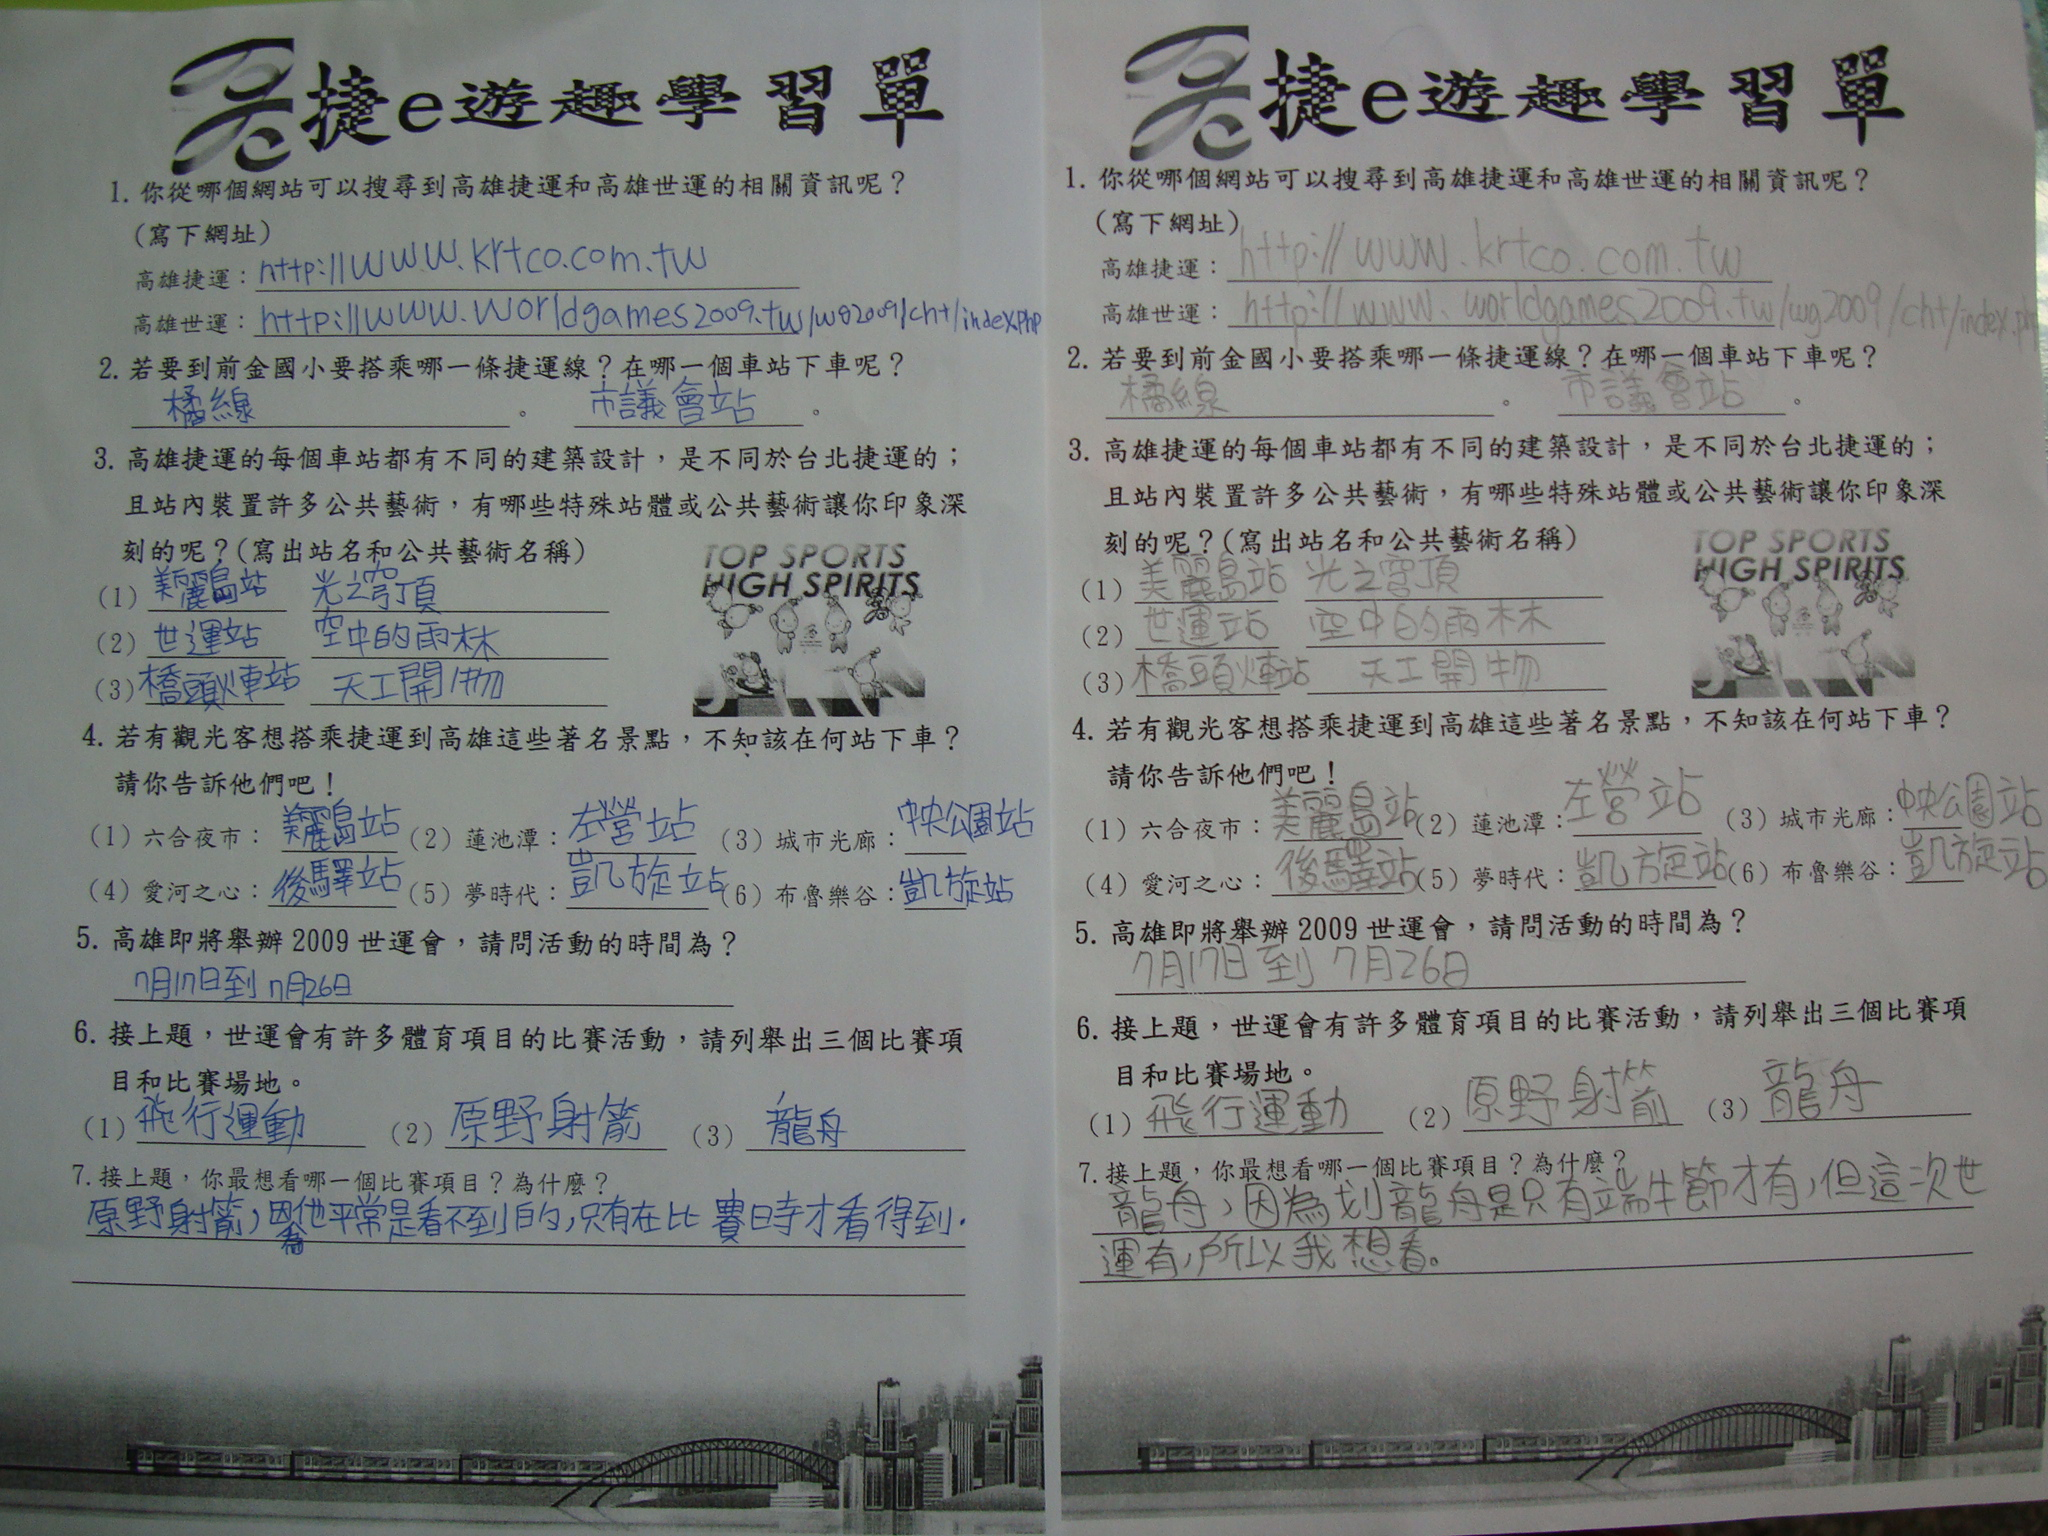 捷e遊趣學習單
1. 你從哪個網站可以搜尋到高雄捷運和高雄世運的相關資訊呢？
(寫下網址)
高雄捷運：http://www.krtco.com.tw
高雄世運：http://www.worldgames2009.tw/wg2009/cht/index.php
2. 若要到前金國小要搭乘哪一條捷運線？在哪一個車站下車呢？
橘線。 市議會站。
3. 高雄捷運的每個車站都有不同的建築設計，是不同於台北捷運的；
且站內裝置許多公共藝術，有哪些特殊站體或公共藝術讓你印象深
刻的呢？(寫出站名和公共藝術名稱)
TOP SPORTS
HIGH SPIRITS
(1) 美麗島站 光之穹頂
(2) 世運站 空中的雨林
(3) 橋頭火車站 天工開物
4. 若有觀光客想搭乘捷運到高雄這些著名景點，不知該在何站下車？
請你告訴他們吧！
(1) 六合夜市：美麗島站 (2) 蓮池潭：左營站 (3) 城市光廊：中央公園站
(4) 愛河之心：後驛站 (5) 夢時代：凱旋站 (6) 布魯樂谷：凱旋站
5. 高雄即將舉辦 2009 世運會，請問活動的時間為？
7月17日到7月26日
6. 接上題，世運會有許多體育項目的比賽活動，請列舉出三個比賽項
目和比賽場地。
(1) 飛行運動 (2) 原野射箭 (3) 龍舟
7. 接上題，你最想看哪一個比賽項目？為什麼？
原野射箭，因為他平常是看不到的，只有在比賽時才看得到.
捷e遊趣學習單
1. 你從哪個網站可以搜尋到高雄捷運和高雄世運的相關資訊呢？
(寫下網址)
高雄捷運：http://www.krtco.com.tw
高雄世運：http://www.worldgames2009.tw/wg2009/cht/index.php
2. 若要到前金國小要搭乘哪一條捷運線？在哪一個車站下車呢？
橘線。 市議會站。
3. 高雄捷運的每個車站都有不同的建築設計，是不同於台北捷運的；
且站內裝置許多公共藝術，有哪些特殊站體或公共藝術讓你印象深
刻的呢？(寫出站名和公共藝術名稱)
TOP SPORTS
HIGH SPIRITS
(1) 美麗島站 光之穹頂
(2) 世運站 空中的雨林
(3) 橋頭火車站 天工開物
4. 若有觀光客想搭乘捷運到高雄這些著名景點，不知該在何站下車？
請你告訴他們吧！
(1) 六合夜市：美麗島站 (2) 蓮池潭：左營站 (3) 城市光廊：中央公園站
(4) 愛河之心：後驛站 (5) 夢時代：凱旋站 (6) 布魯樂谷：凱旋站
5. 高雄即將舉辦 2009 世運會，請問活動的時間為？
7月17日到7月26日
6. 接上題，世運會有許多體育項目的比賽活動，請列舉出三個比賽項
目和比賽場地。
(1) 飛行運動 (2) 原野射箭 (3) 龍舟
7. 接上題，你最想看哪一個比賽項目？為什麼？
龍舟，因為划龍舟是只有端午節才有，但這次世
運有，所以我想看。